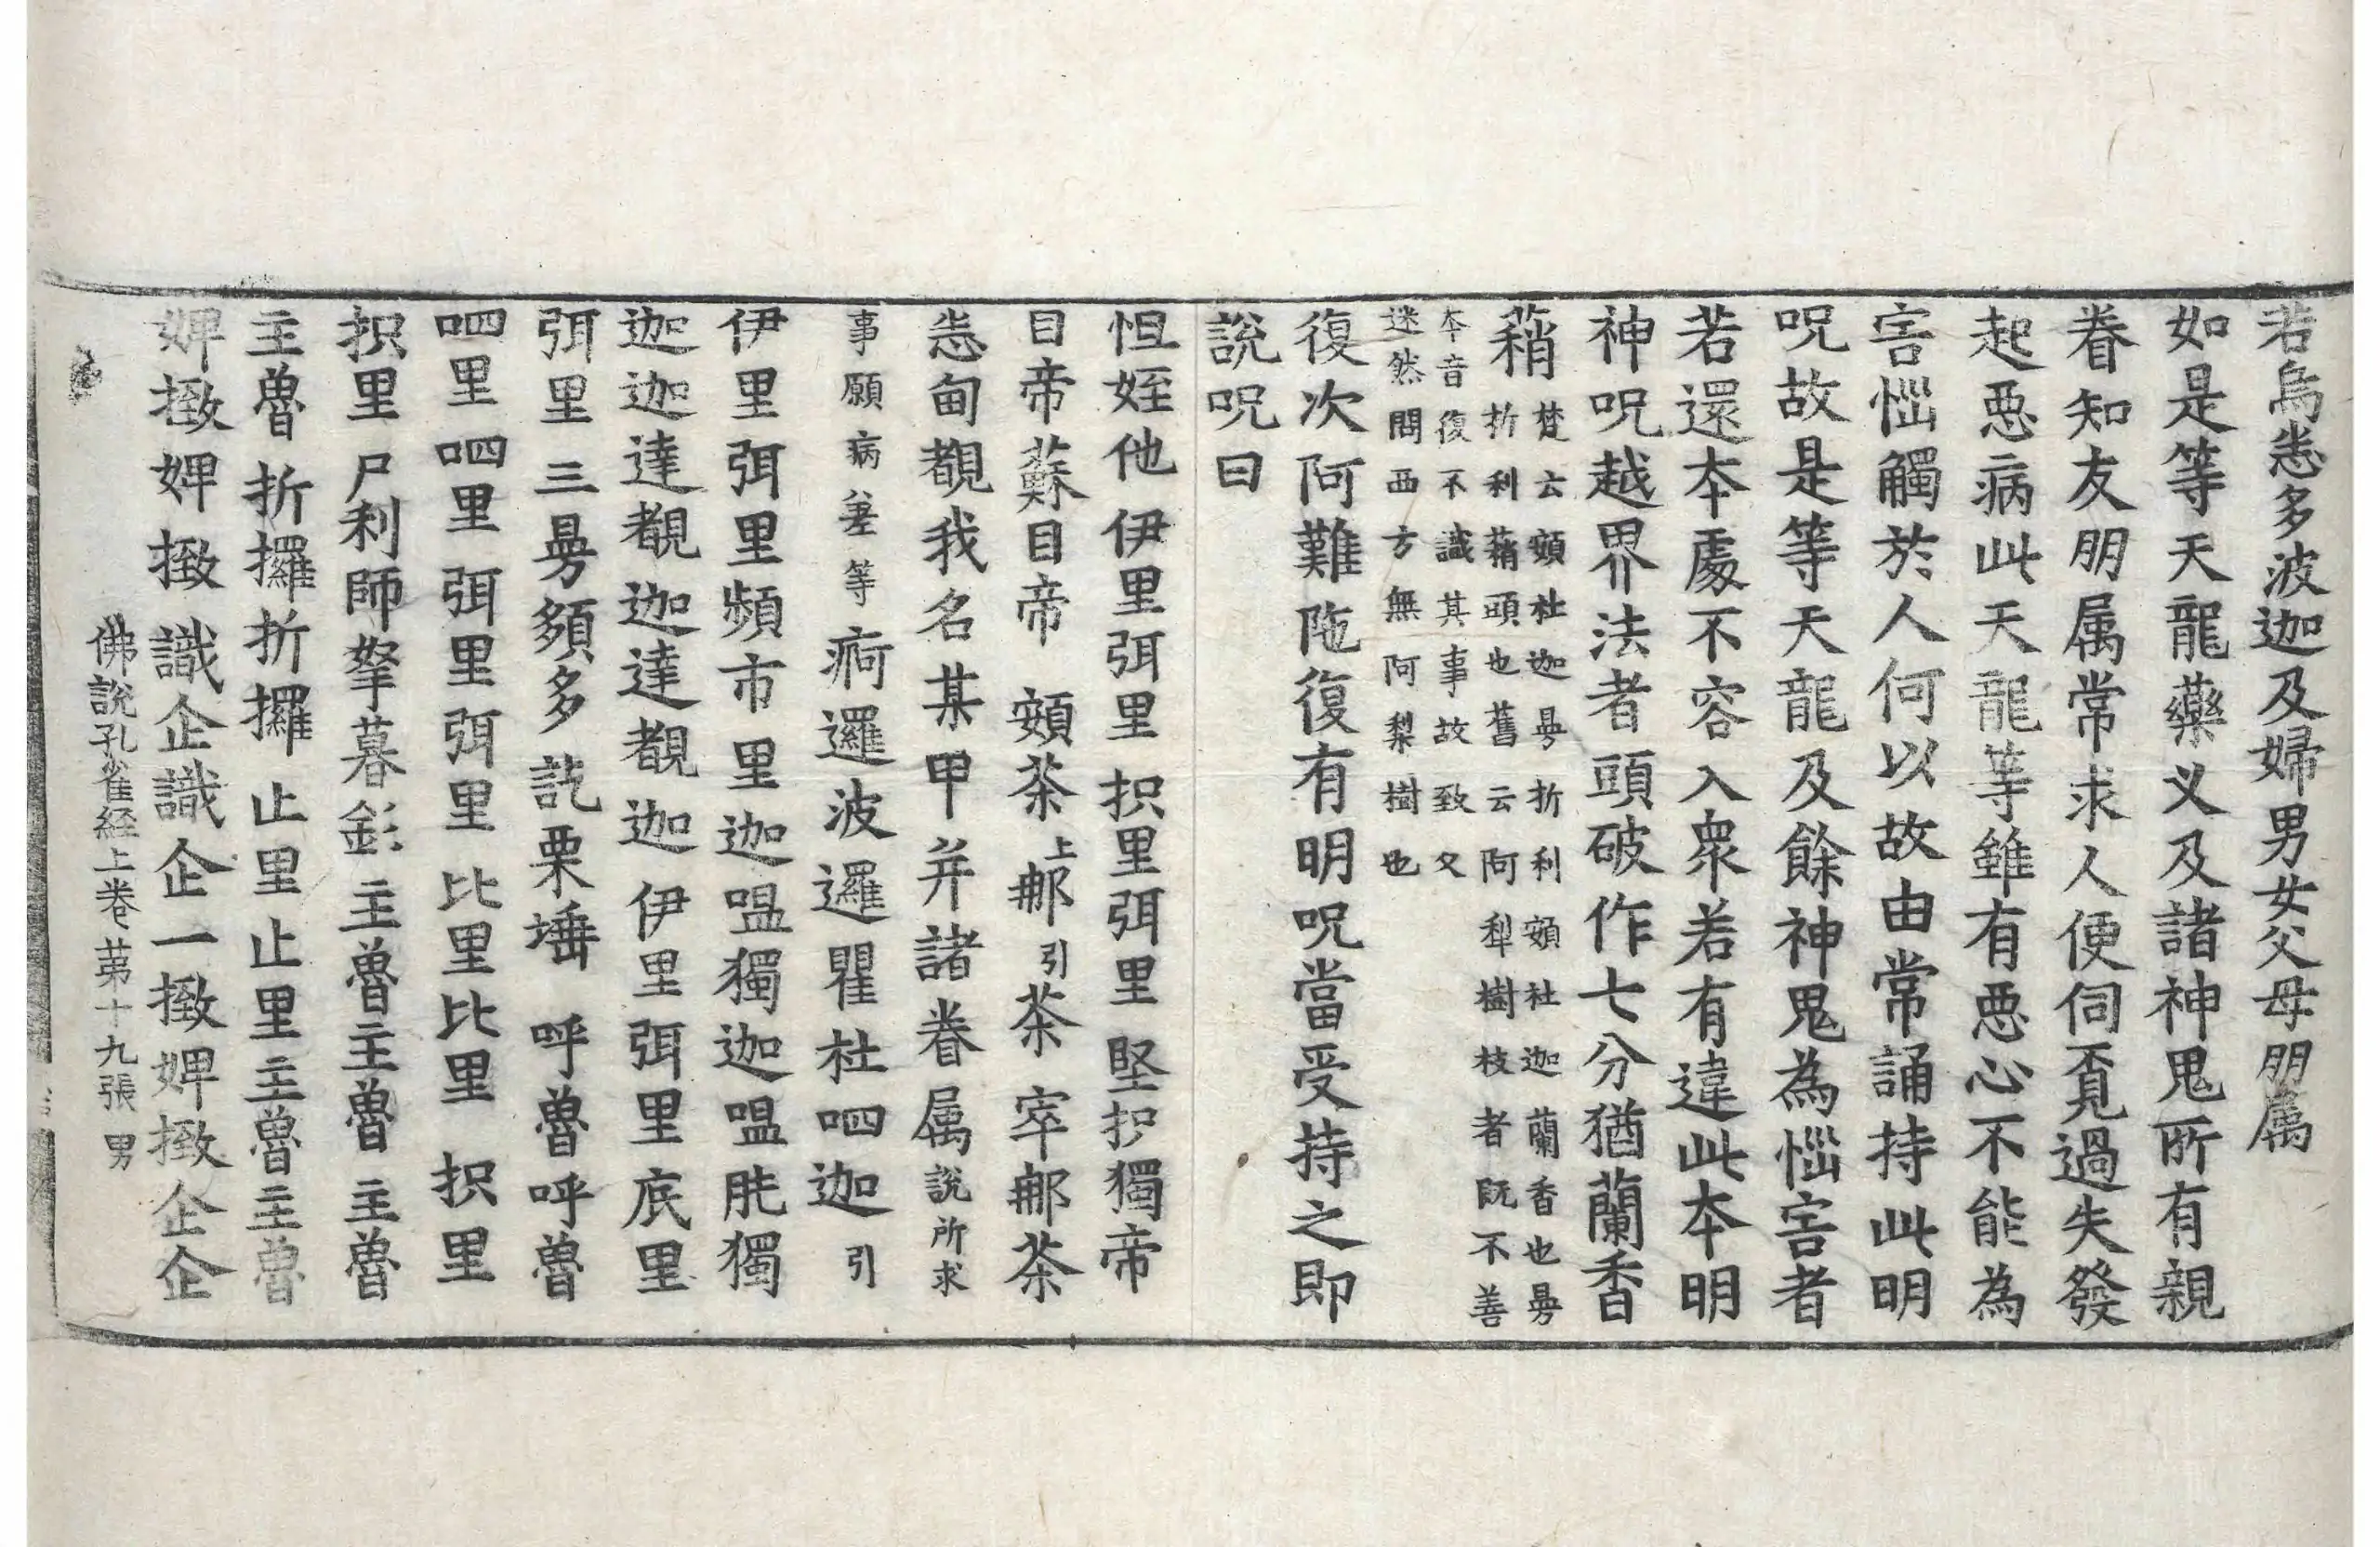 若烏悉多波迦及婦男女父母朋属
如是等天龍藥叉及諸神鬼所有親
眷知友朋属常求人便伺覔過失發
起惡病此天龍等雖有惡心不能為
害惱觸於人何以故由常誦持此明
呪故是等天龍及餘神鬼為惱害者
若還本處不容入衆若有違此本明
神呪越界法者頭破作七分猶蘭香
蕱
梵云頞杜迦曷折利頞杜迦蘭香也曷
折利蕱頭也舊云阿犁樹枝者既不善
本音復不識其事故致久
迷然問西方無阿梨樹也
復次阿難陁復有明呪當受持之即
說呪曰
怛姪他伊里弭里抧里弭里堅抧獨帝
目帝蘇目帝頞茶上郍引茶窣郍茶
悉甸覩我名某甲并諸眷属說所求
事願病差等痾邏波邏瞿杜呬迦引
伊里弭里頻市里迦嗢獨迦嗢胜獨
迦迦達覩迦達覩迦伊里弭里底里
弭里三曷頞多訖栗埵呼魯呼魯
呬里呬里弭里弭里比里比里抧里
抧里尸利師拏暮𨥥主魯主魯主魯
主魯折攞折攞止里止里主魯主魯
婢撽婢撽識企識企一撽婢撽企企
佛說孔雀経上卷苐十九張男